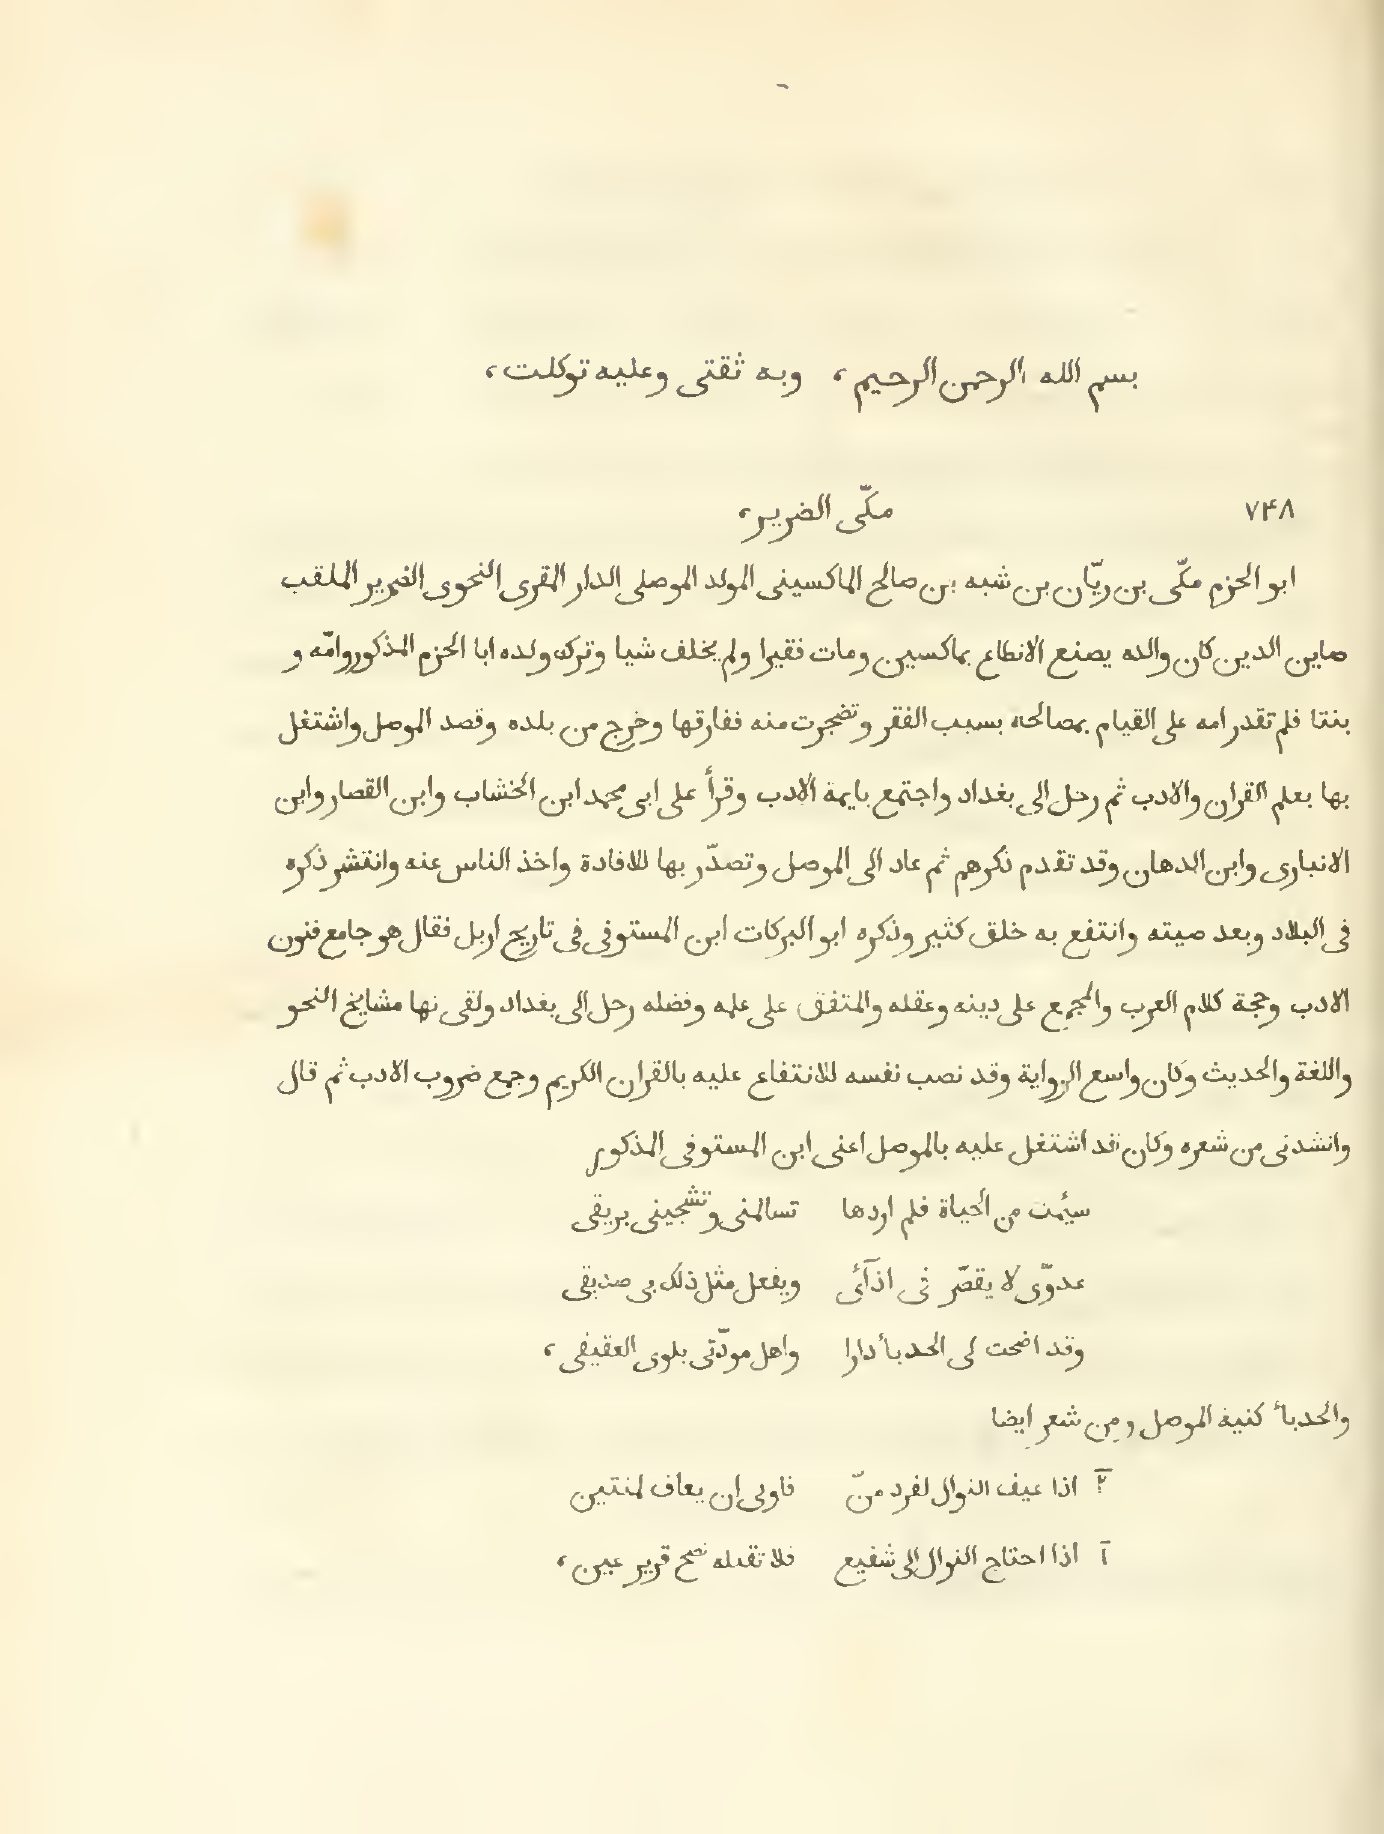 بسم الله الرحمن الرحيم، وبه ثقتى وعليه توكلت،
٧۴٨
مكّى الضرير،
ابو الحزم مكّى بن ريّان بن شبه بن صالح الماكسينى المولد الموصلى الدار المقرى النحوى الضرير الملقب
صاين الدين كان والده يصنع الانطاع بماكسين ومات فقيرا ولم يخلف شيا وترك ولده ابا الحزم المذكور وامّه و
بنتا فلم تقدر امه على القيام بمصالحه بسبب الفقر وتضجرت منه ففارقها وخرج من بلده وقصد الموصل واشتغل
بها بعلم القران والادب ثم رحل الى بغداد واجتمع بايمة الادب وقرأ على ابى محمد ابن الخشاب وابن القصار وابن
الانبارى وابن الدهان وقد تقدم ذكرهم ثم عاد الى الموصل وتصدّر بها للافادة واخذ الناس عنه وانتشر ذكره
فى البلاد وبعد صيته وانتفع به خلق كثير وذكره ابو البركات ابن المستوفى فى تاريخ اربل فقال هو جامع فنون
الادب وحجة كلام العرب والمجمع على دينه وعقله والمتفق على علمه وفضله رحل الى بغداد ولقى نها مشايخ النحو
واللغة والحديث وكان واسع الرواية وقد نصب نفسه للانتفاع عليه بالقران الكريم وجمع ضروب الادب ثم قال
وانشدنى من شعره وكان قد اشتغل عليه بالموصل اعنى ابن المستوفى المذكور
سيُمت من الحياة فلم اردها تسالمنى وتشجينى بريقى
عدوّى لا يقصّر فى اذآئى ويفعل مثل ذلك بى صديقى
وقد اضحت لى الحدباُ دارا واهل مودّتى بلوى العقيفى،
والحدباُ كنية الموصل ومن شعر ايضا
٢ اذا عيف النوال لفرد منّ فاوبى ان يعاف لمنتين
ا اذا احتاج النوال الى شفيع فلا تقبله تصح قرير عين،